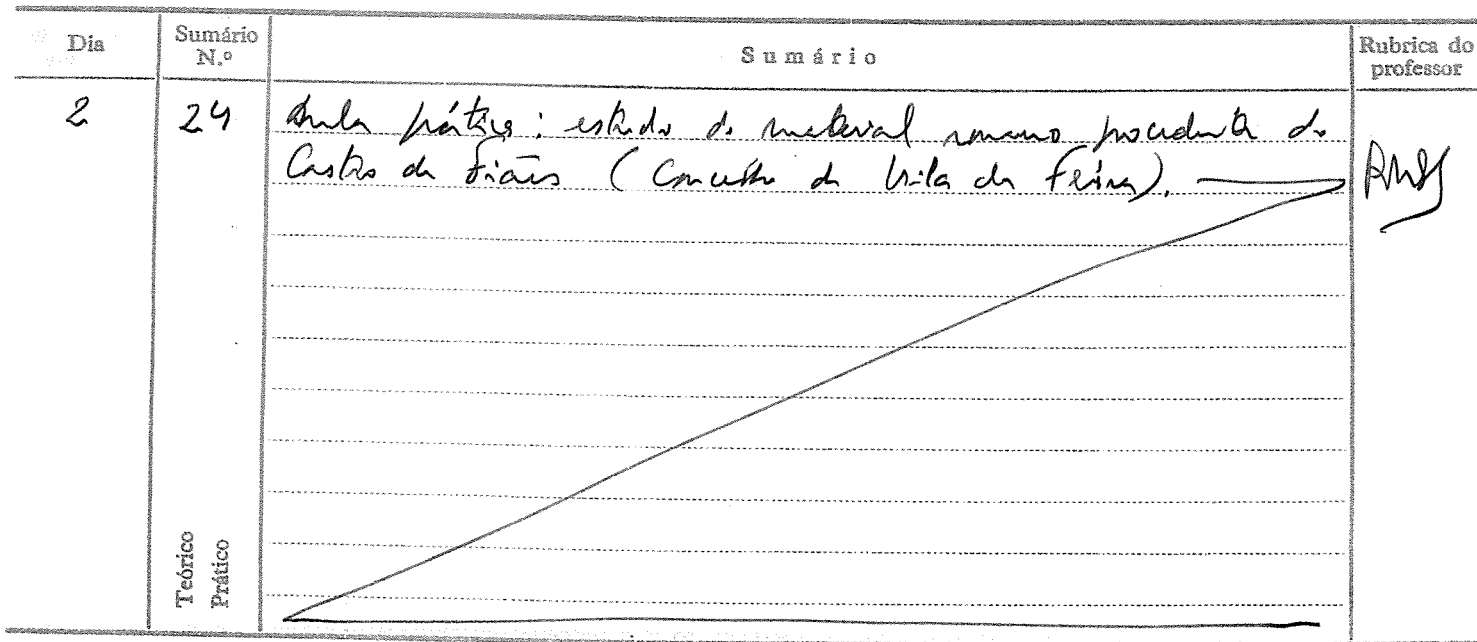 Dia
Sumário N.º
Sumário
Rubrica do professor
2
24
Aula prática: estudo do material romano procedente do
Castro de Fiães (Concelho de Vila da Feira).
Teórico
Prático